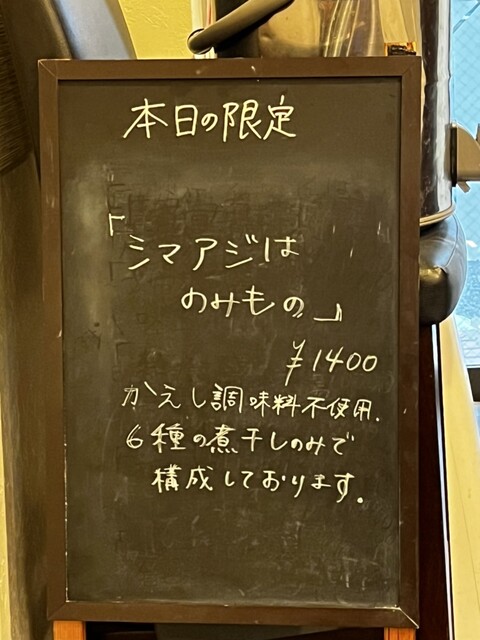 本日の限定
「シマアジは
のみもの」
¥1400
かえし調味料不使用.
6種の煮干しのみで
構成しております。